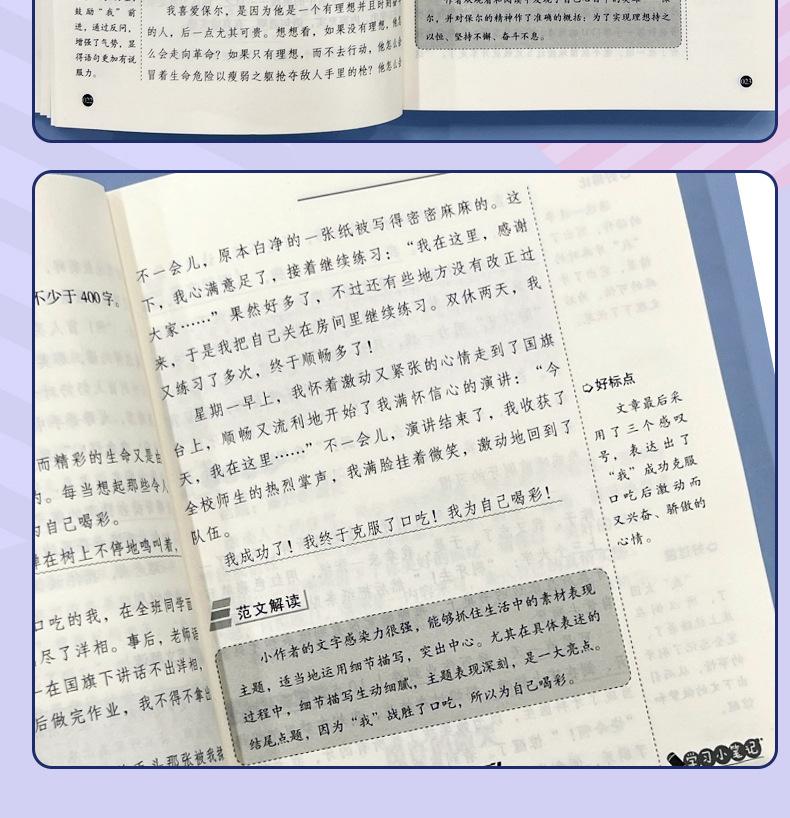 鼓励“我”前
进，通过反问，
增强了气势，显
得语句更加有说
服力。
我喜爱保尔，是因为他是一个有理想并且时刻
的人，后一点尤其可贵。想想看，如果没有理想，他怎
么会走向革命？如果只有理想，而不去行动，他怎么会
冒着生命危险以瘦弱之躯抢夺敌人手里的枪？他怎么会
022
尔，并对保尔的精神作了准确的概括：为了实现理想持之
以恒、坚持不懈、奋斗不息。
023
不少于400字。
而精彩的生命又是由
为。每当想起那些令人
为自己喝彩。
蝉在树上不停地鸣叫着，
口吃的我，在全班同学面
尽了洋相。事后，老师语
在国旗下讲话不出洋相，
后做完作业，我不得不拿出
头那张被我揉
不一会儿，原本白净的一张纸被写得密密麻麻的。这
下，我心满意足了，接着继续练习：“我在这里，感谢
大家……”果然好多了，不过还有些地方没有改正过
来，于是我把自己关在房间里继续练习。双休两天，我
又练习了多次，终于顺畅多了！
星期一早上，我怀着激动又紧张的心情走到了国旗
台上，顺畅又流利地开始了我满怀信心的演讲：“今
天，我在这里……”不一会儿，演讲结束了，我收获了
全校师生的热烈掌声，我满脸挂着微笑，激动地回到了
队伍。
我成功了！我终于克服了口吃！我为自己喝彩！
范文解读
小作者的文字感染力很强，能够抓住生活中的素材表现
主题，适当地运用细节描写，突出中心。尤其在具体表述的
过程中，细节描写生动细腻，主题表现深刻，是一大亮点。
结尾点题，因为“我”战胜了口吃，所以为自己喝彩。
好标点
文章最后采
用了三个感叹
号，表达出了
“我”成功克服
口吃后激动而
又兴奋、骄傲的
心情。
学习小笔记